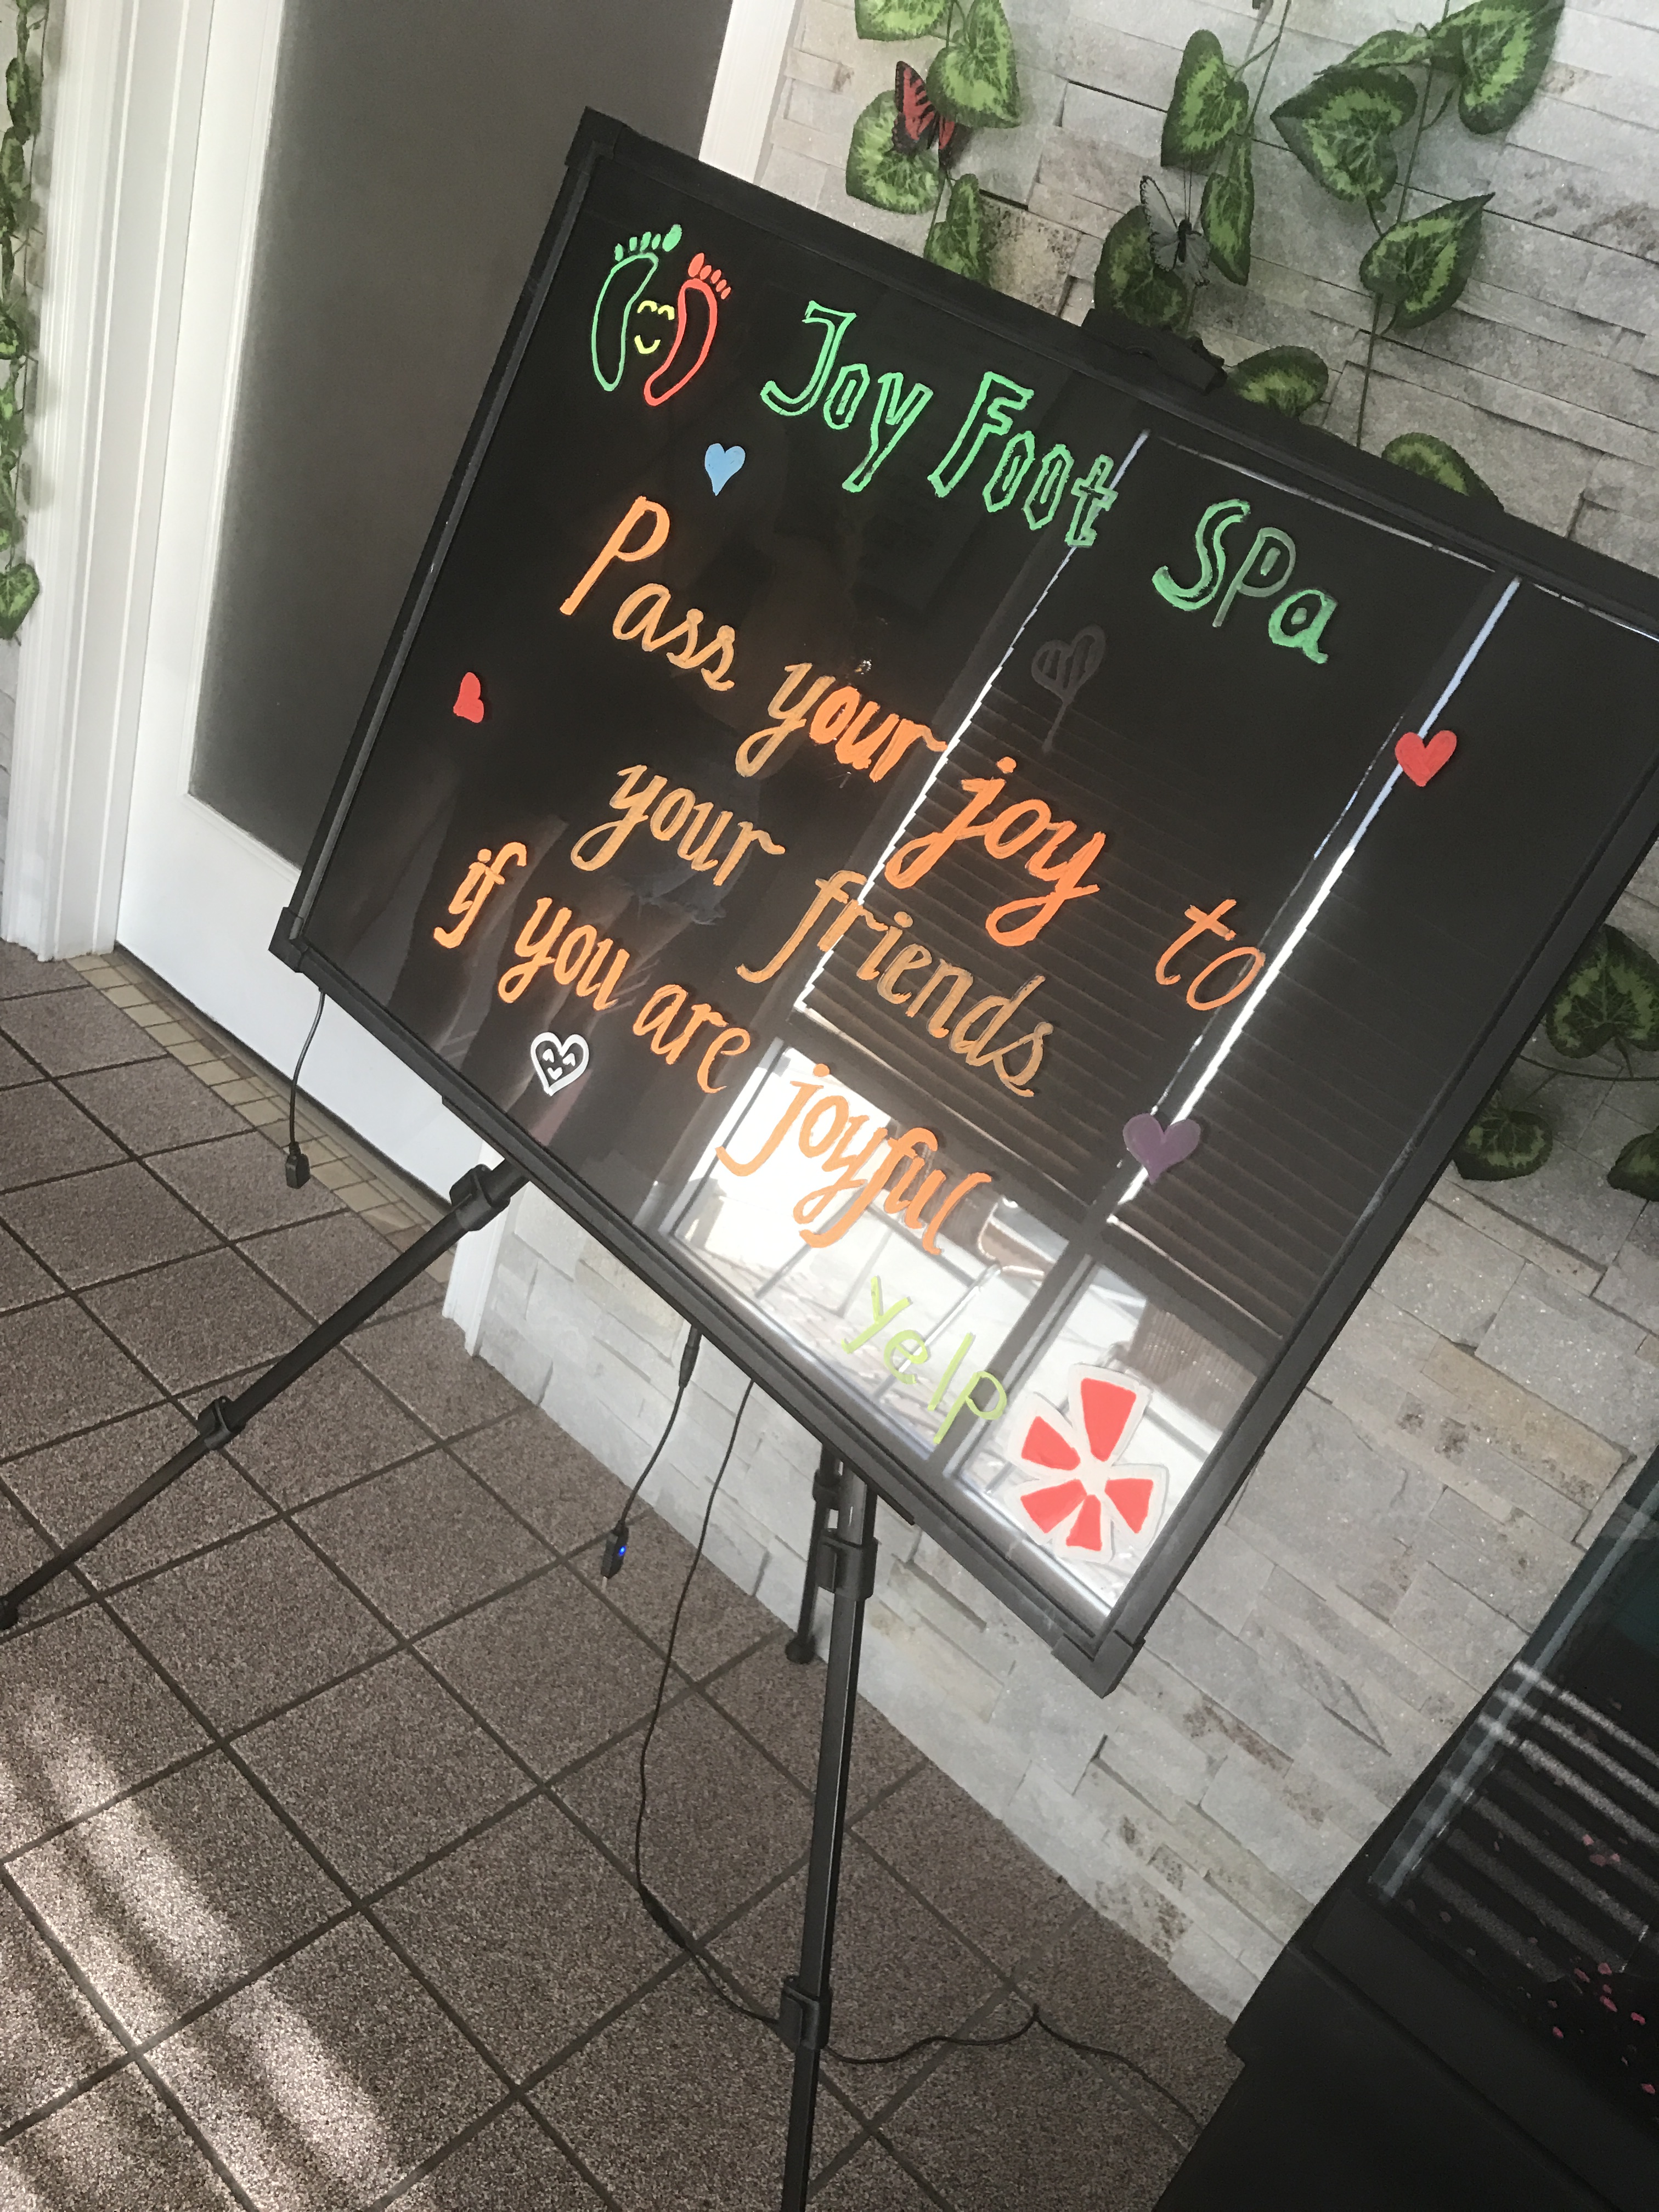 Joy Foot SPa
Pass your joy to
your friends
if you are joyful
yelp